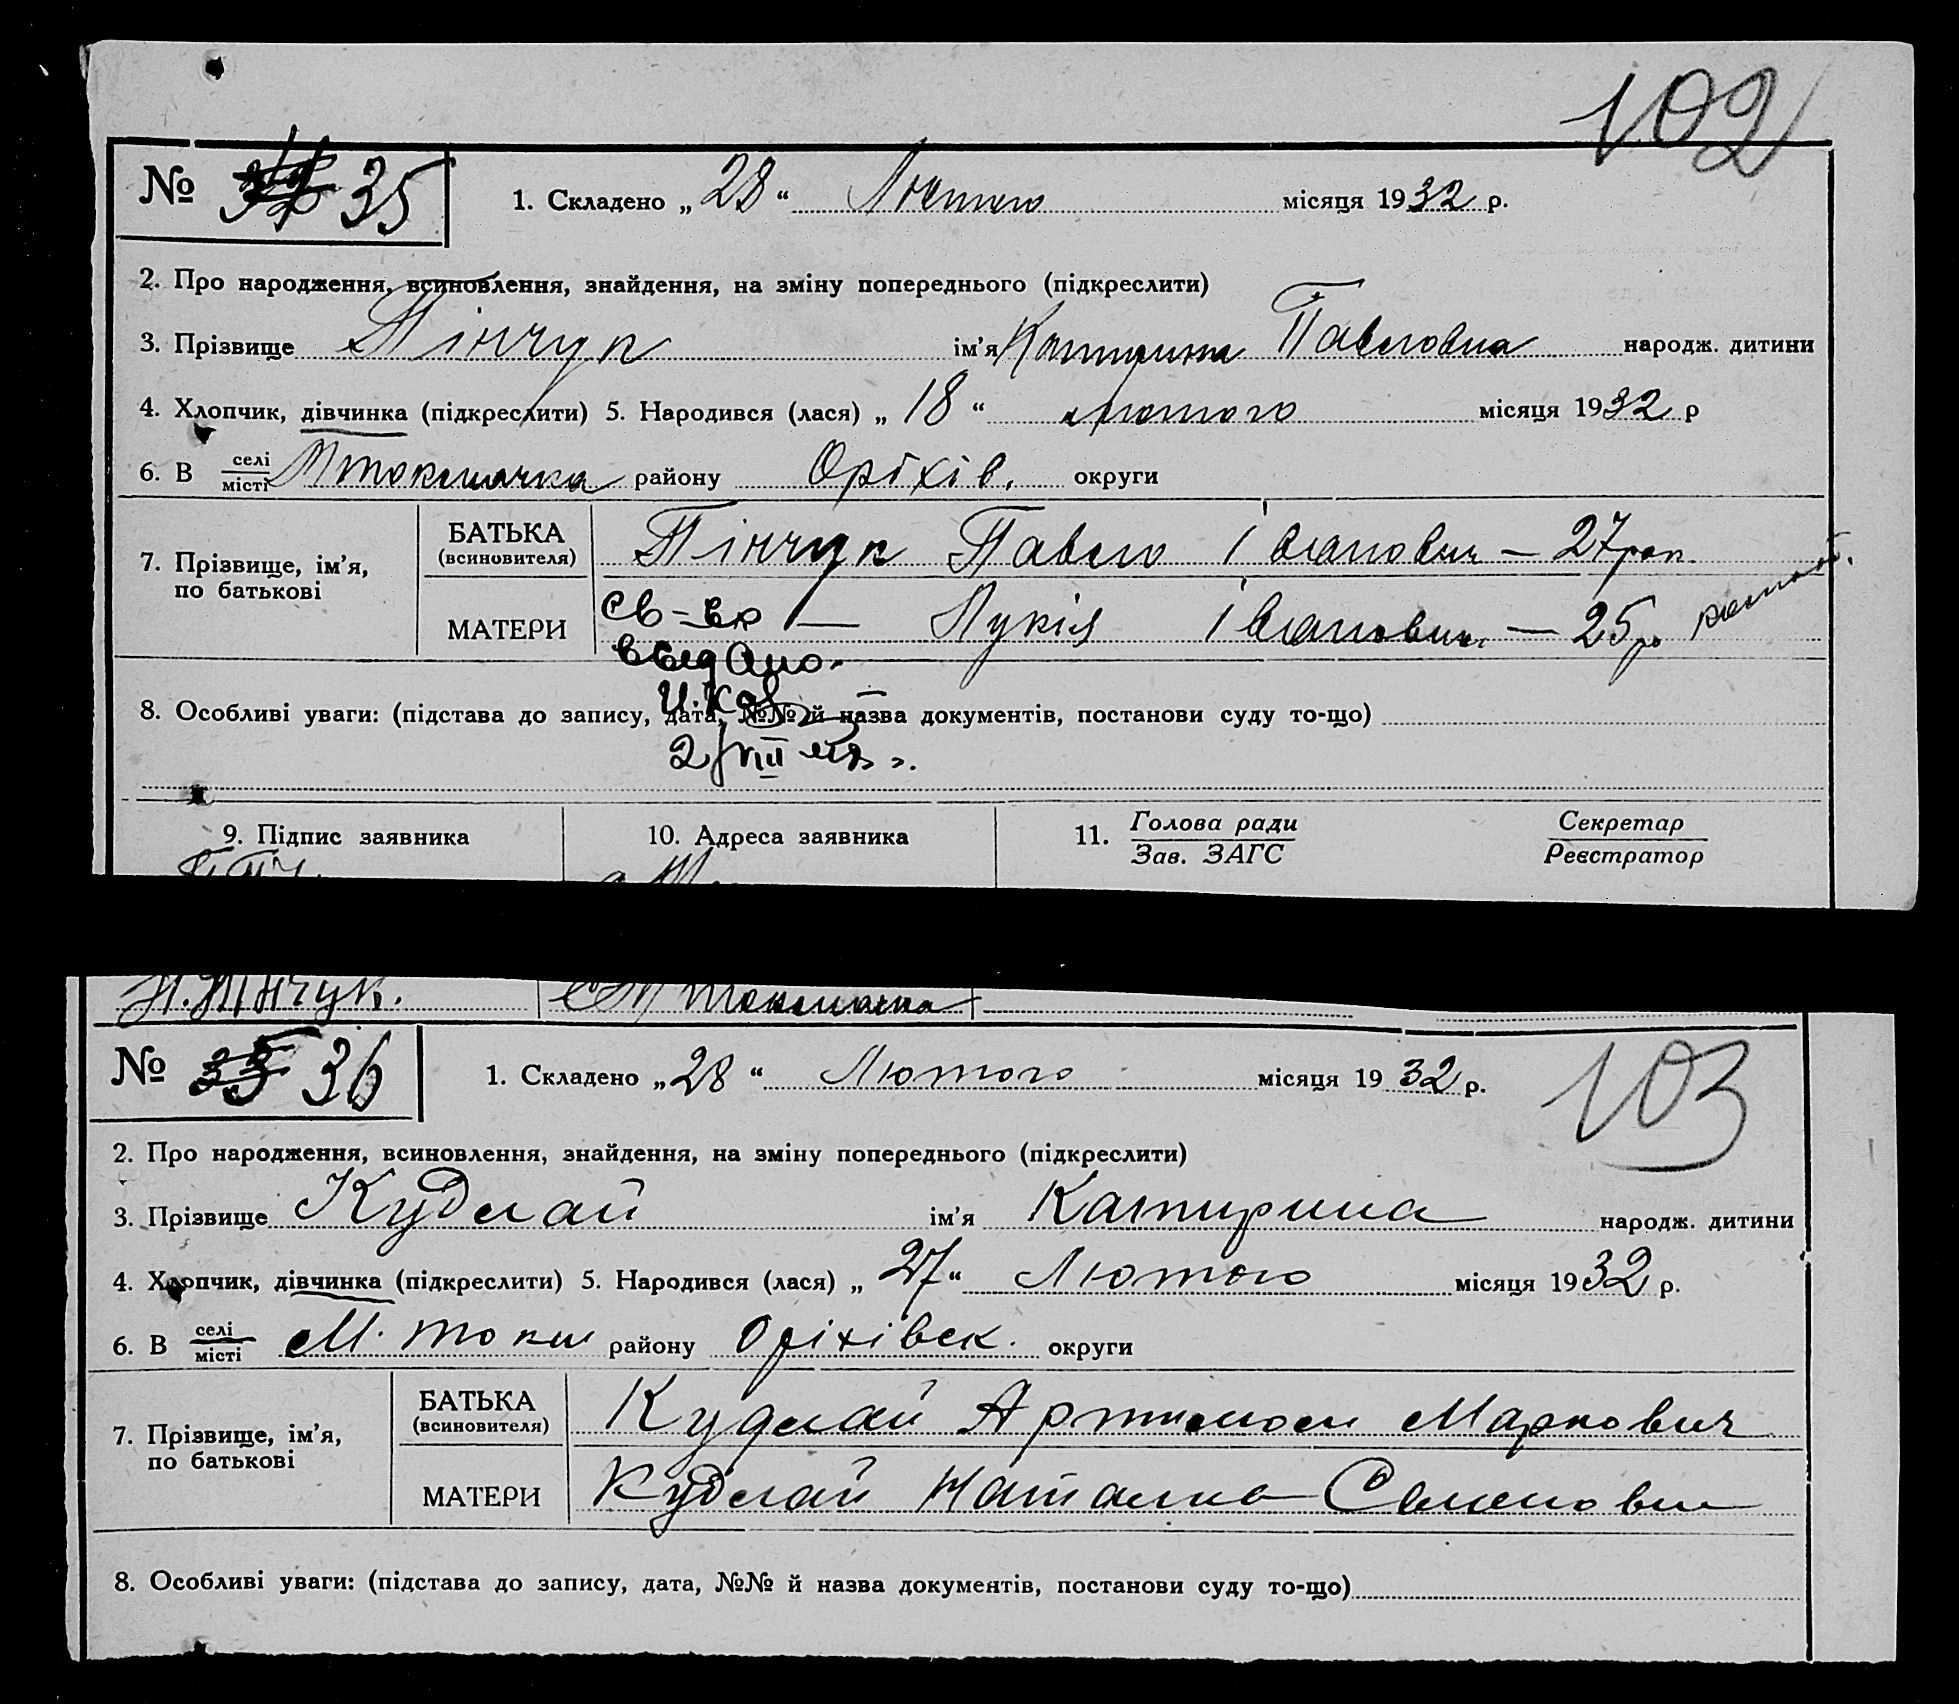 102
№ 35 1. Складено „28“ Лютого місяця 1932 р.
2. Про народження, всиновлення, знайдення, на зміну попереднього (підкреслити)
3. Прізвище Пінчук ім’я Катирина Павловна народж. дитини
4. Хлопчик, дівчинка (підкреслити) 5. Народився (лася) „18“ лютого місяця 1932 р
6. В селі місті Мтокмачка району Оріхів. округи
7. Прізвище, ім’я, по батькові
БАТЬКА (всиновителя) Пінчук Павло Іванович — 27 рок.
МАТЕРИ — Лукія Іванович — 25 р
св-во
выдано.
8. Особливі уваги: (підстава до запису, дата, №№ й назва документів, постанови суду то-що)
9. Підпис заявника 10. Адреса заявника 11. Голова ради Зав. ЗАГС Секретар Реєстратор
П. Пінчук. с М токмачка
№ 35 36 1. Складено „28“ Лютого місяця 1932 р.
103
2. Про народження, всиновлення, знайдення, на зміну попереднього (підкреслити)
3. Прізвище Кудлай ім’я Катирина народж. дитини
4. Хлопчик, дівчинка (підкреслити) 5. Народився (лася) „27“ Лютого місяця 1932 р.
6. В селі місті М. токм району Оріхівск. округи
7. Прізвище, ім’я, по батькові
БАТЬКА (всиновителя) Кудлай Артимон Маркович
МАТЕРИ Кудлай Наталка Семенович
8. Особливі уваги: (підстава до запису, дата, №№ й назва документів, постанови суду то-що)